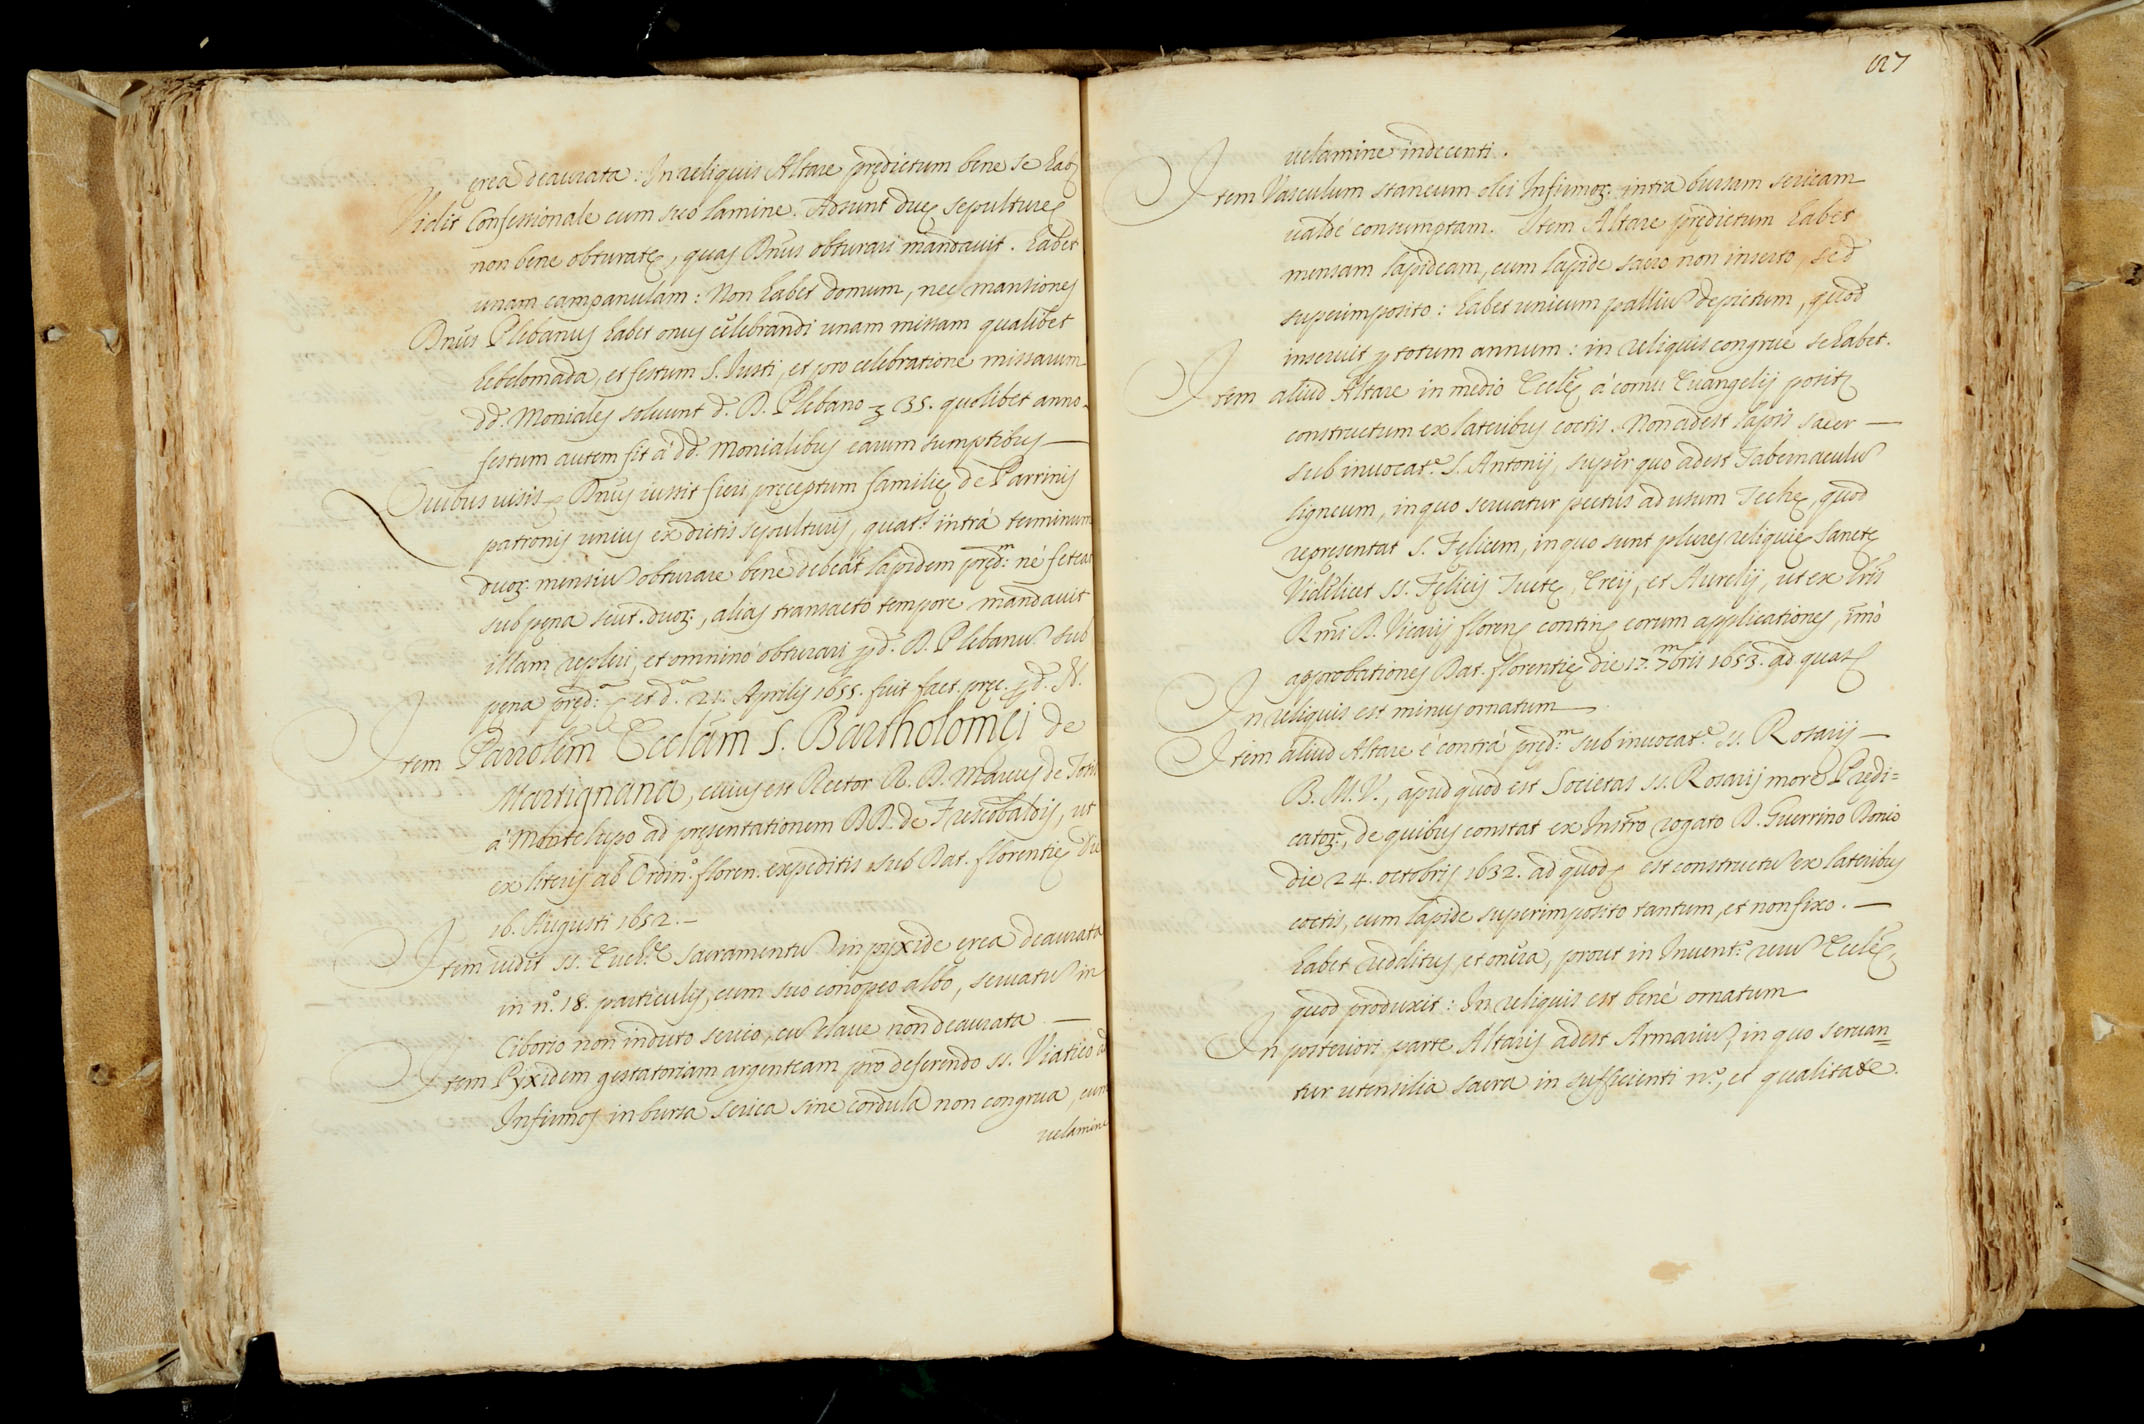 ęrea deaurata: In reliquis Altare prędictum bene se hab.
Vidit Confessionale cum suo lamine. Adsunt duę sepulturę
non bene obturatę, quas Dn̄us obturari mandavit. habet
unam campanulam: Non habet domum, nec mansiones
Dn̄us Plebanus habet onus celebrandi unam missam qualibet
hebdomada, et festum S. Iusti, et pro celebratione missarum
dd. Moniales soluunt d. D. Plebano 35. quolibet anno
festum autem fit à dd. Monialibus earum sumptibus —
Quibus visis Dn̄us iussit fieri pręceptum familię de Parrinis
patronis unius ex dictis sepulturis, quat.s intrà terminum
duor. mensiū obturare bene debeat lapidem pręd.m né feteat
sub pęna scut. duor., alias transacto tempore mandavit
illam repleri, et omninò obturari p d. D. Plebanū sub
pęna pręd.a et d.a 21. Aprilis 1655. fuit fact. pręc. p d. N.
Item Parrolēm Ecclām S. Bartholomęi de
Martignana, cuius est Rector R. D. Marcus de
à Montelupo ad pręsentationem DD. de Frescobaldis, ut
ex literis ab Ordin.o floren. expeditis sub Dat. florentię die
16. Augusti 1652. —
Item vidit SS. Euch.ę Sacramentū in pyxide ęrea deaurata
in n.o 18. particulis, cum suo conopeo albo, seruatū in
Ciborio non induto serico, cū claue non deaurata —
Item Pyxidem gestatoriam argenteam pro deferendo SS. Viatico ad
Infirmos in bursa serica sine cordula non congrua, cum
velamine
127
velamine indecenti.
Item Vasculum staneum olei Infirmor. intra bursam sericam
valdé consumptam. Item Altare prędictum habet
mensam lapideam, cum lapide sacro non inserto, sed
superimposito: habet unicum palliū depictum, quod
inseruit p totum annum: in reliquis congruè se habet.
Item aliud Altare in medio Ecclę à cornu Euangelij posit.
constructum ex lateribus coctis. Non adest lapis sacer —
sub inuocat.e S. Antonij, super quo adest Tabernaculū
ligneum, in quo seruatur pectus ad usum Techę, quod
repręsentat S. Fęlicem, in quo sunt plures reliquię Sanctę
Videlicet SS. Fęlicis et Aurelij, ut ex lr̄is
Rm̄i D. Vicarij floren. contin. eorum applicationes, im̄ò
approbationes Dat. florentię die 17. 7m̄bris 1653. ad quas
In reliquis est minus ornatum —
Item aliud Altare è contrà pręd.m sub inuocat.e SS. Rosarij —
B. M. V., apud quod est Societas SS. Rosarij more Prędi=
cator., de quibus constat ex Instr̄o rogato D. Guerrino Bonio
die 24. octobris 1632. ad quod est constructū ex lateribus
coctis, cum lapide superimposito tantum, et non fixo. —
habet redditus, et onera, prout in Inuent.o rerū Ecclę,
quod produxit: In reliquis est bené ornatum —
In posteriori parte Altaris adest Armariū, in quo seruan=
tur utensilia sacra in sufficienti n.o, et qualitate.